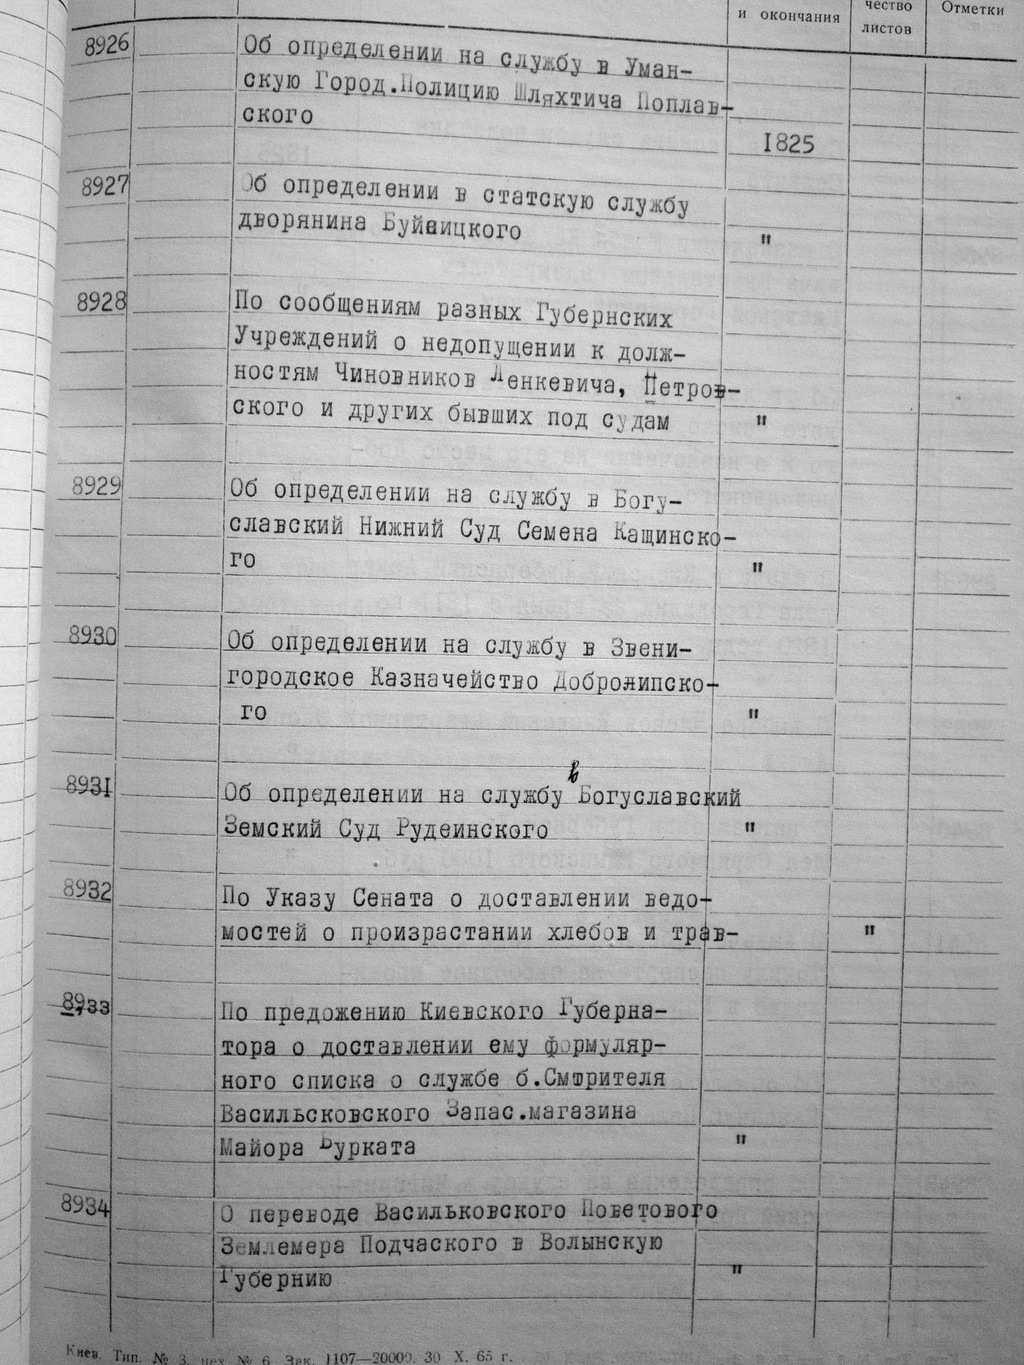 и окончания
чество
листов
Отметки
8926
Об определении на службу в Уман-
скую Город.Полицию Шляхтича Поплав-
ского
1825
8927
Об определении в статскую службу
дворянина Буйвицкого "
8928
По сообщениям разных Губернских
Учреждений о недопущении к долж-
ностям Чиновников Ленкевича, Петров-
ского и других бывших под судам "
8929
Об определении на службу в Богу-
славский Нижний Суд Семена Кащинско-
го "
8930
Об определении на службу в Звени-
городское Казначейство Добролипско-
го "
8931
в
Об определении на службу Богуславский
Земский Суд Рудеинского "
8932
По Указу Сената о доставлении ведо-
мостей о произрастании хлебов и трав- "
8933
По предожению Киевского Губерна-
тора о доставлении ему формуляр-
ного списка о службе б.Смтрителя
Васильсковского Запас.магазина
Майора Бурката "
8934
О переводе Васильковского Поветового
Землемера Подчаского в Волынскую
Губернию "
Киев. Тип. № 3, цех № 6 Зак. 1107—20000. 30 X. 65 г.